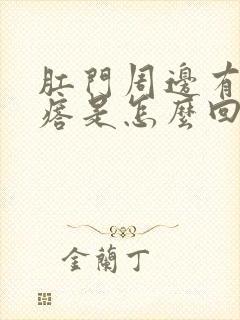 肛門周邊有
痞是怎麼回
金蘭丁